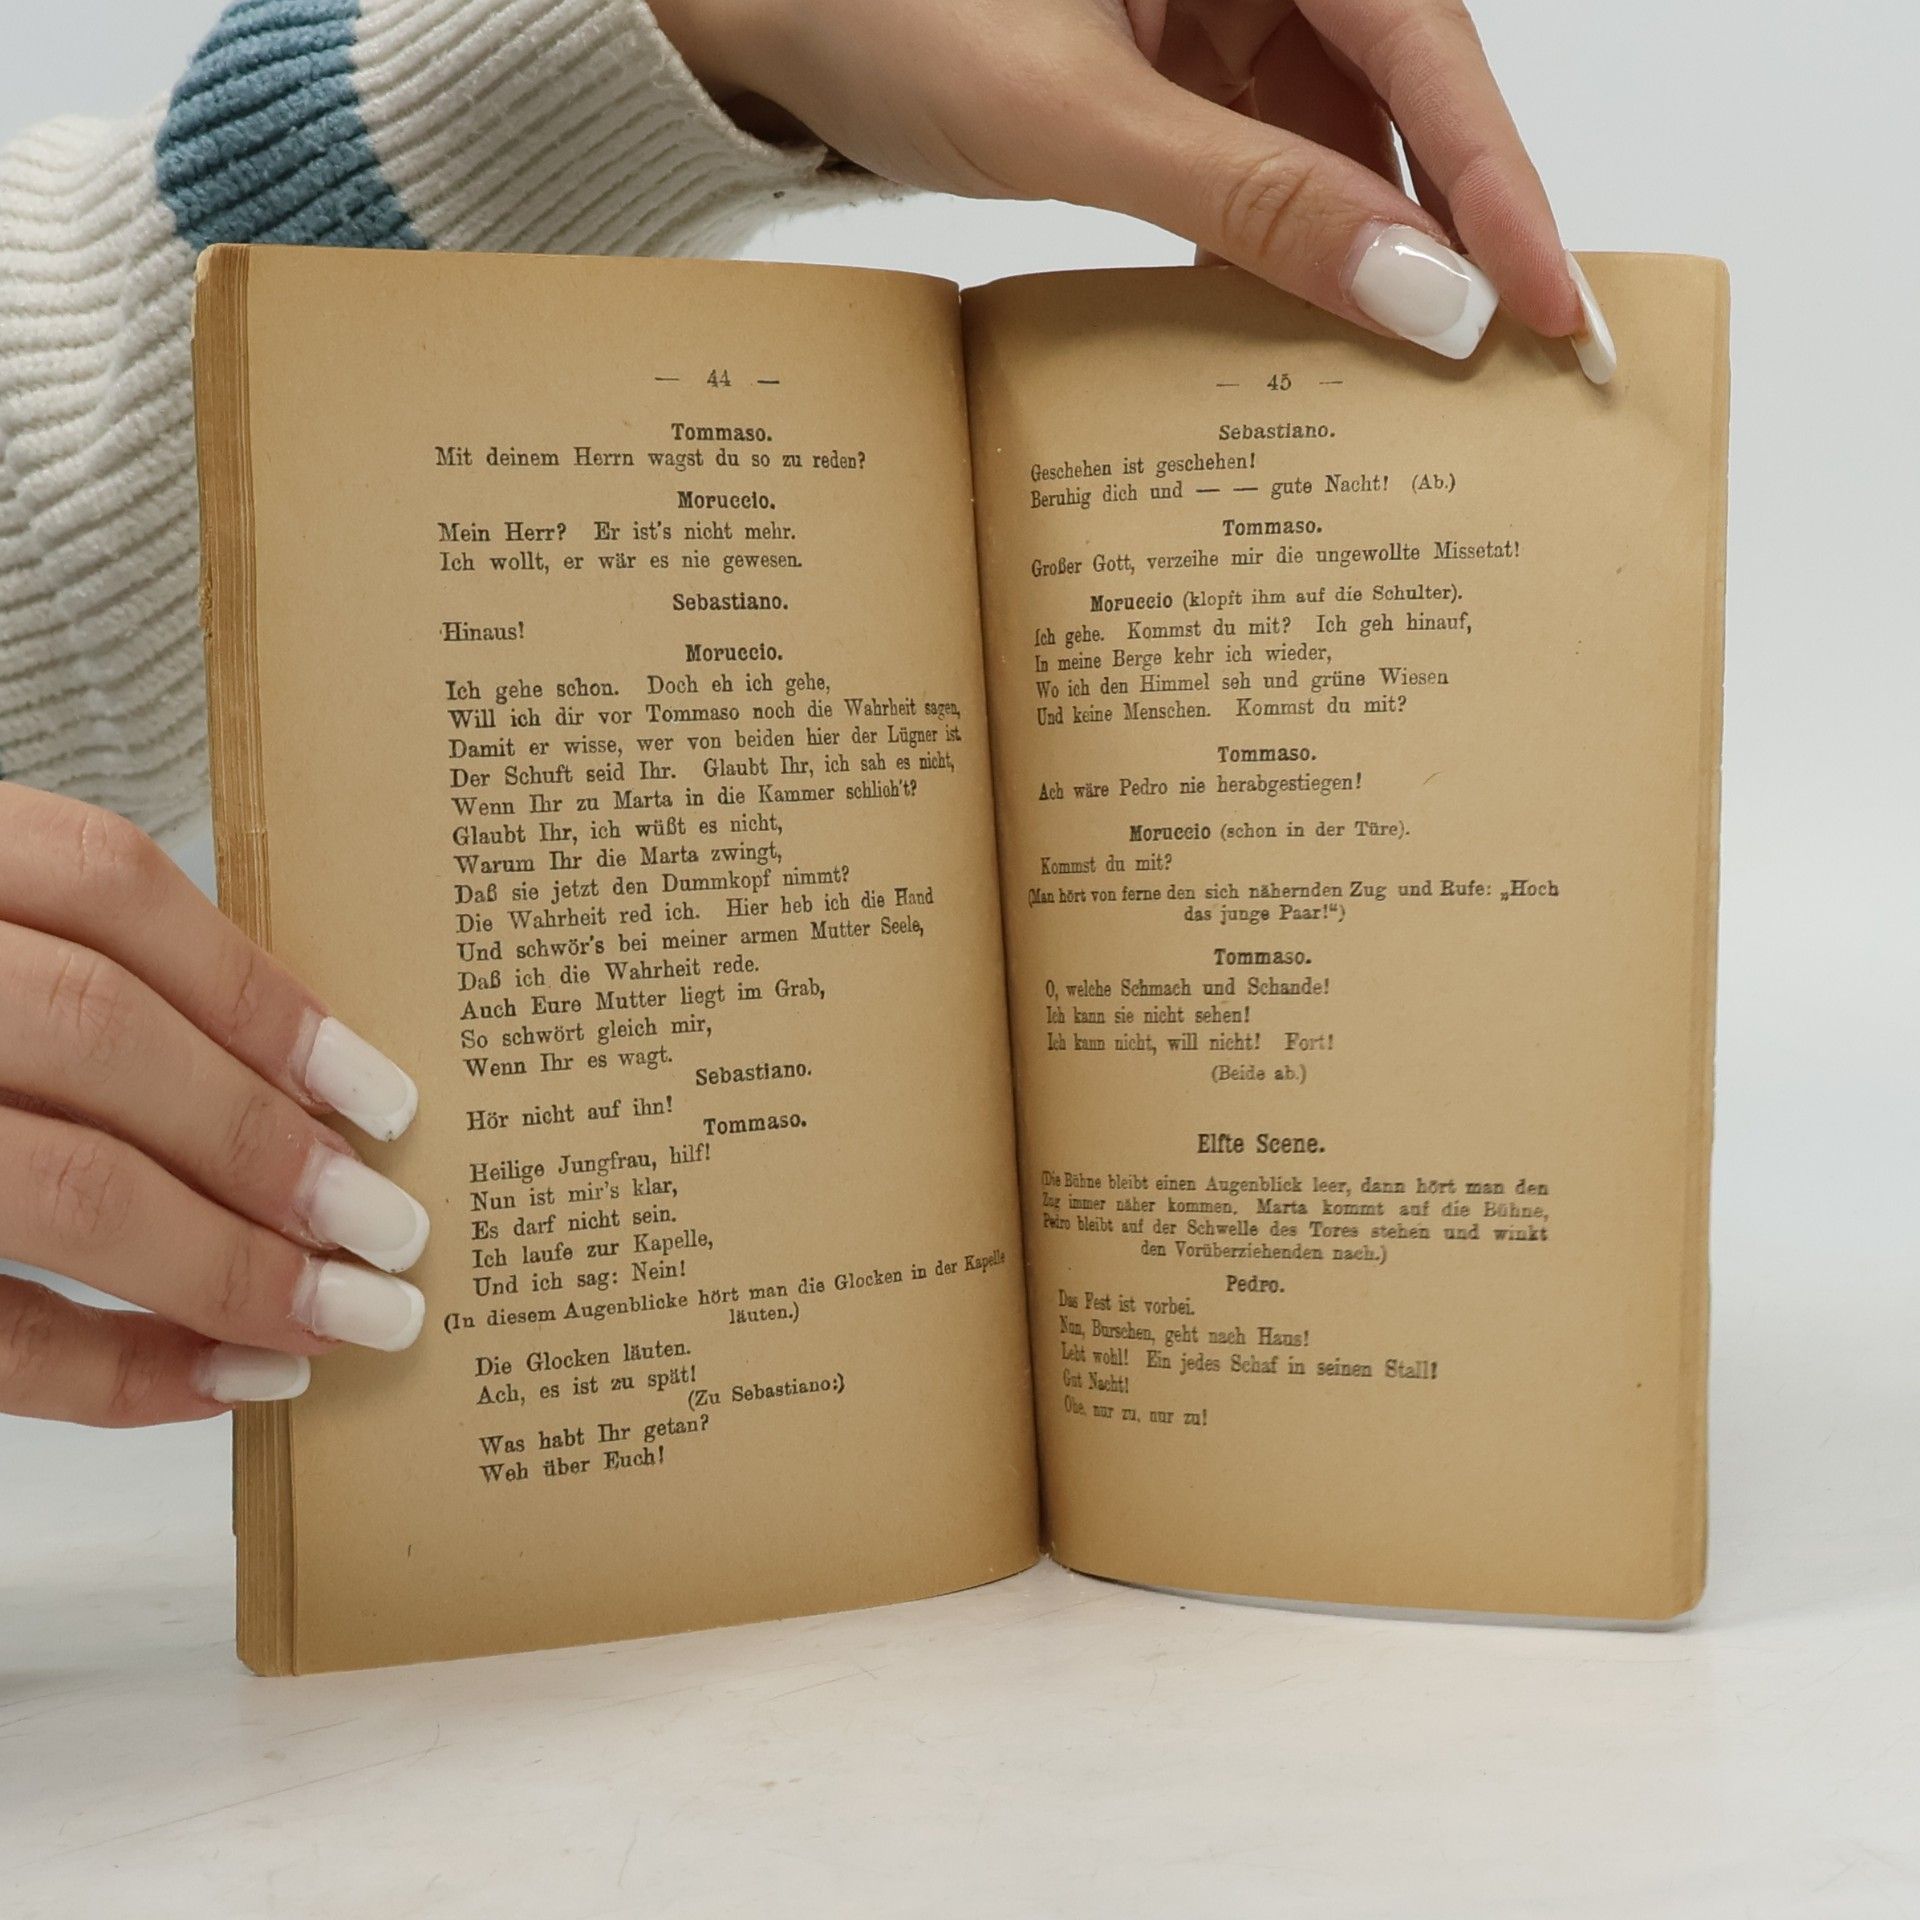 — 44 —
Tommaso.
Mit deinem Herrn wagst du so zu reden?
Moruccio.
Mein Herr? Er ist's nicht mehr.
Ich wollt, er wär es nie gewesen.
Sebastiano.
Hinaus!
Moruccio.
Ich gehe schon. Doch eh ich gehe,
Will ich dir vor Tommaso noch die Wahrheit sagen,
Damit er wisse, wer von beiden hier der Lügner ist.
Der Schuft seid Ihr. Glaubt Ihr, ich sah es nicht,
Wenn Ihr zu Marta in die Kammer schlich't?
Glaubt Ihr, ich wüßt es nicht,
Warum Ihr die Marta zwingt,
Daß sie jetzt den Dummkopf nimmt?
Die Wahrheit red ich. Hier heb ich die Hand
Und schwör's bei meiner armen Mutter Seele,
Daß ich die Wahrheit rede.
Auch Eure Mutter liegt im Grab,
So schwört gleich mir,
Wenn Ihr es wagt.
Sebastiano.
Hör nicht auf ihn!
Tommaso.
Heilige Jungfrau, hilf!
Nun ist mir's klar,
Es darf nicht sein.
Ich laufe zur Kapelle,
Und ich sag: Nein!
(In diesem Augenblicke hört man die Glocken in der Kapelle
läuten.)
Die Glocken läuten.
Ach, es ist zu spät!
(Zu Sebastiano:)
Was habt Ihr getan?
Weh über Euch!
— 45 —
Sebastiano.
Geschehen ist geschehen!
Beruhig dich und — — gute Nacht! (Ab.)
Tommaso.
Großer Gott, verzeihe mir die ungewollte Missetat!
Moruccio (klopft ihm auf die Schulter).
Ich gehe. Kommst du mit? Ich geh hinauf,
In meine Berge kehr ich wieder,
Wo ich den Himmel seh und grüne Wiesen
Und keine Menschen. Kommst du mit?
Tommaso.
Ach wäre Pedro nie herabgestiegen!
Moruccio (schon in der Türe).
Kommst du mit?
(Man hört von ferne den sich nähernden Zug und Rufe: „Hoch
das junge Paar!“)
Tommaso.
O, welche Schmach und Schande!
Ich kann sie nicht sehen!
Ich kann nicht, will nicht! Fort!
(Beide ab.)
Elfte Scene.
(Die Bühne bleibt einen Augenblick leer, dann hört man den
Zug immer näher kommen. Marta kommt auf die Bühne,
Pedro bleibt auf der Schwelle des Tores stehen und winkt
den Vorüberziehenden nach.)
Pedro.
Das Fest ist vorbei.
Nun, Burschen, geht nach Haus!
Lebt wohl! Ein jedes Schaf in seinen Stall!
Gut Nacht!
Ohe, nur zu, nur zu!